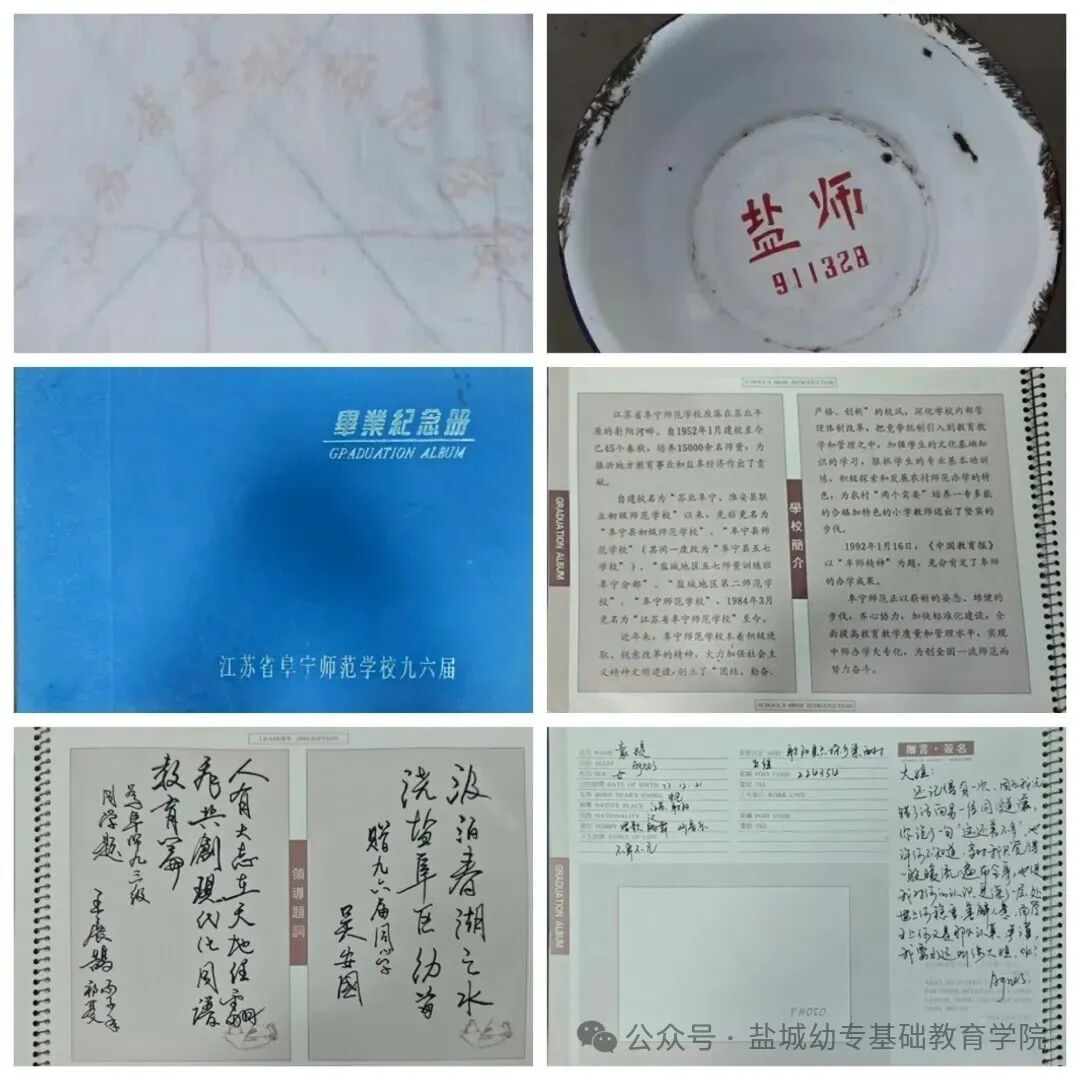 盐师
911328
畢業紀念册
GRADUATION ALBUM
江苏省阜宁师范学校九六届
SCHOOL'S BRIEF INTRODUCTION
江苏省阜宁师范学校座落在苏北平
原的射阳河畔。自1952年1月建校至今
已45个春秋，培养15000余名师资，为
振兴地方教育事业和盐阜经济作出了贡
献。
自建校名为“苏北阜宁、淮安县联
立初级师范学校”以来，先后更名为
“阜宁县初级师范学校”、“阜宁县师
范学校”（其间一度改为“阜宁县五七
学校”）、“盐城地区五七师资训练班
阜宁分部”、“盐城地区第二师范学
校”、“阜宁师范学校”，1984年3月
更名为“江苏省阜宁师范学校”至今。
近年来，阜宁师范学校本着积极进
取、锐意改革的精神，大力加强社会主
义精神文明建设，创立了“团结、勤奋、
严格、创新”的校风，深化学校内部管
理体制改革，把竞争机制引入到教育教
学和管理之中，加强学生的文化基础知
识的学习，狠抓学生的专业基本功训
练，积极探索和发展农村师范办学的特
色，为农村“两个需要”培养一专多能
的合格加特色的小学教师迈出了坚实的
步伐。
1992年1月16日，《中国教育报》
以“阜师精神”为题，充分肯定了阜师
的办学成果。
阜宁师范正以崭新的姿态、雄健的
步伐，齐心协力，加快标准化建设，全
面提高教育教学质量和管理水平，实现
中师办学大专化，为创全国一流师范而
努力奋斗。
GRADUATION ALBUM
學校簡介
SCHOOL'S BRIEF INTRODUCTION
LEADER'S INSCRIPTION
人有大志在天地任翻
飞共創現代化同譜
教育篇
為阜师九三级
同学题
王展鵠
領導題詞
波泊春湖之水
浇盐阜巨幼苗
赠九六届同学
吴安國
GRADUATION ALBUM
NAME 袁媞
ALIAS Agnes
SEX 女
DATE OF BIRTH 77.12.21
NATIVE PLACE 江苏射阳
NATIONALITY 汉
HOBBY 唱歌 听音乐
不卑不亢
POST CODE 224354
POST CODE
TEL
贈言·簽名
大姐：
还记得有一次，因为我说
错了话而另一位同学道谦，
你说了一句“这还差不多”，也
许你不知道，当时我只觉得
一股暖流遍布全身，也使
我对你的认识更深了一层，处
世上你稳重、善解人意，而学
习上你又是那么认真、严谨，
我要永远叫你大姐，好？
Agnes
PHOTO
公众号·盐城幼专基础教育学院